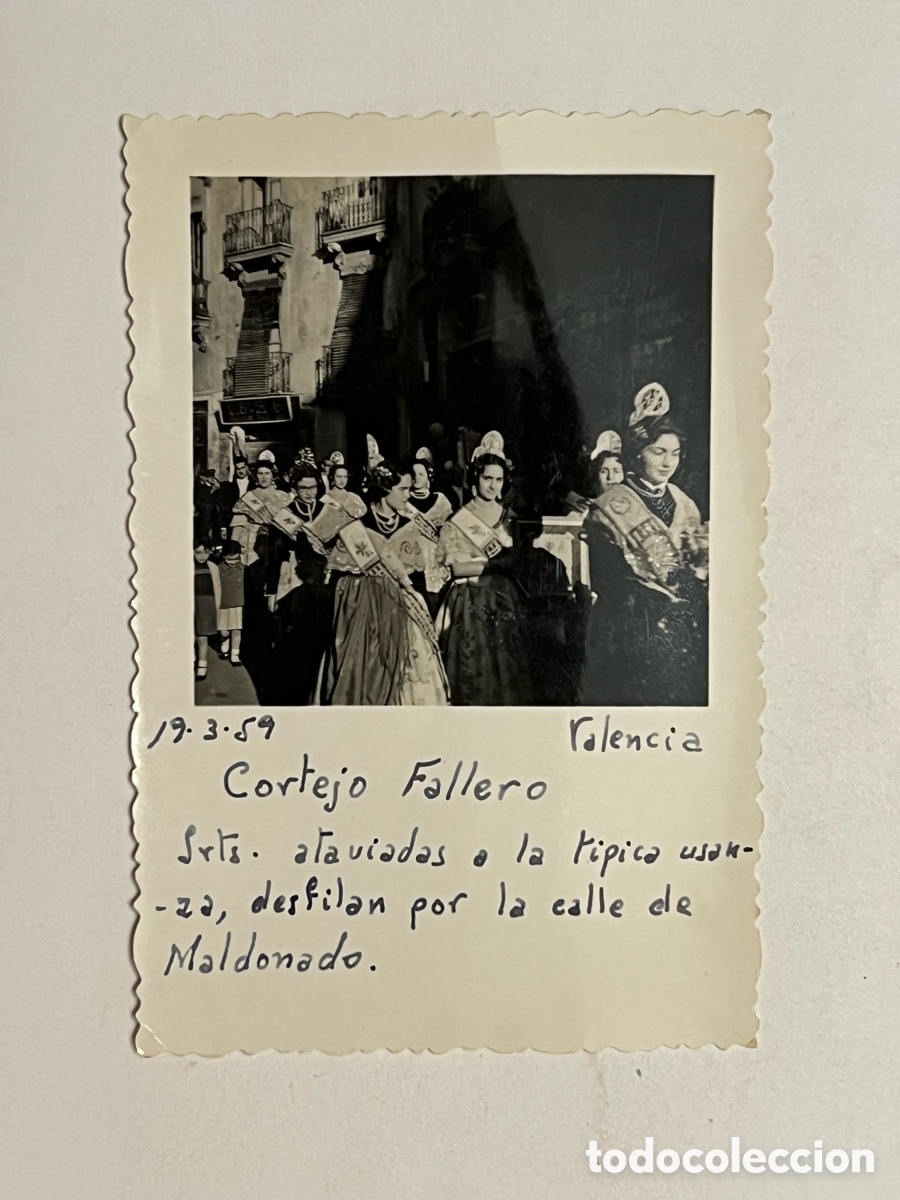 19.3.59 Valencia
Cortejo Fallero
Srts. ataviadas a la tipica usan-
-za, desfilan por la calle de
Maldonado.
todocoleccion